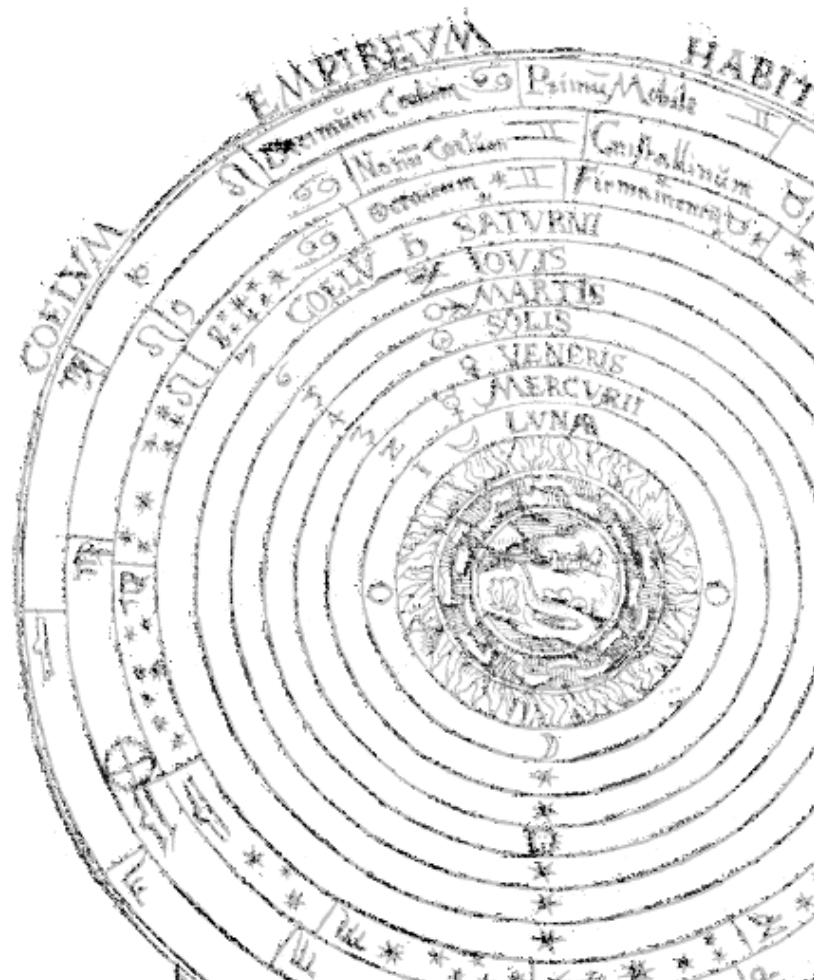 COELVM
EMPIREVM
HABIT
Decimum Coelum
Primũ Mobile
Nonũ Coelum
Cristallinum
Firmamentũ
COELV SATVRNI
IOVIS
MARTIS
SOLIS
VENERIS
MERCVRII
LVNÆ